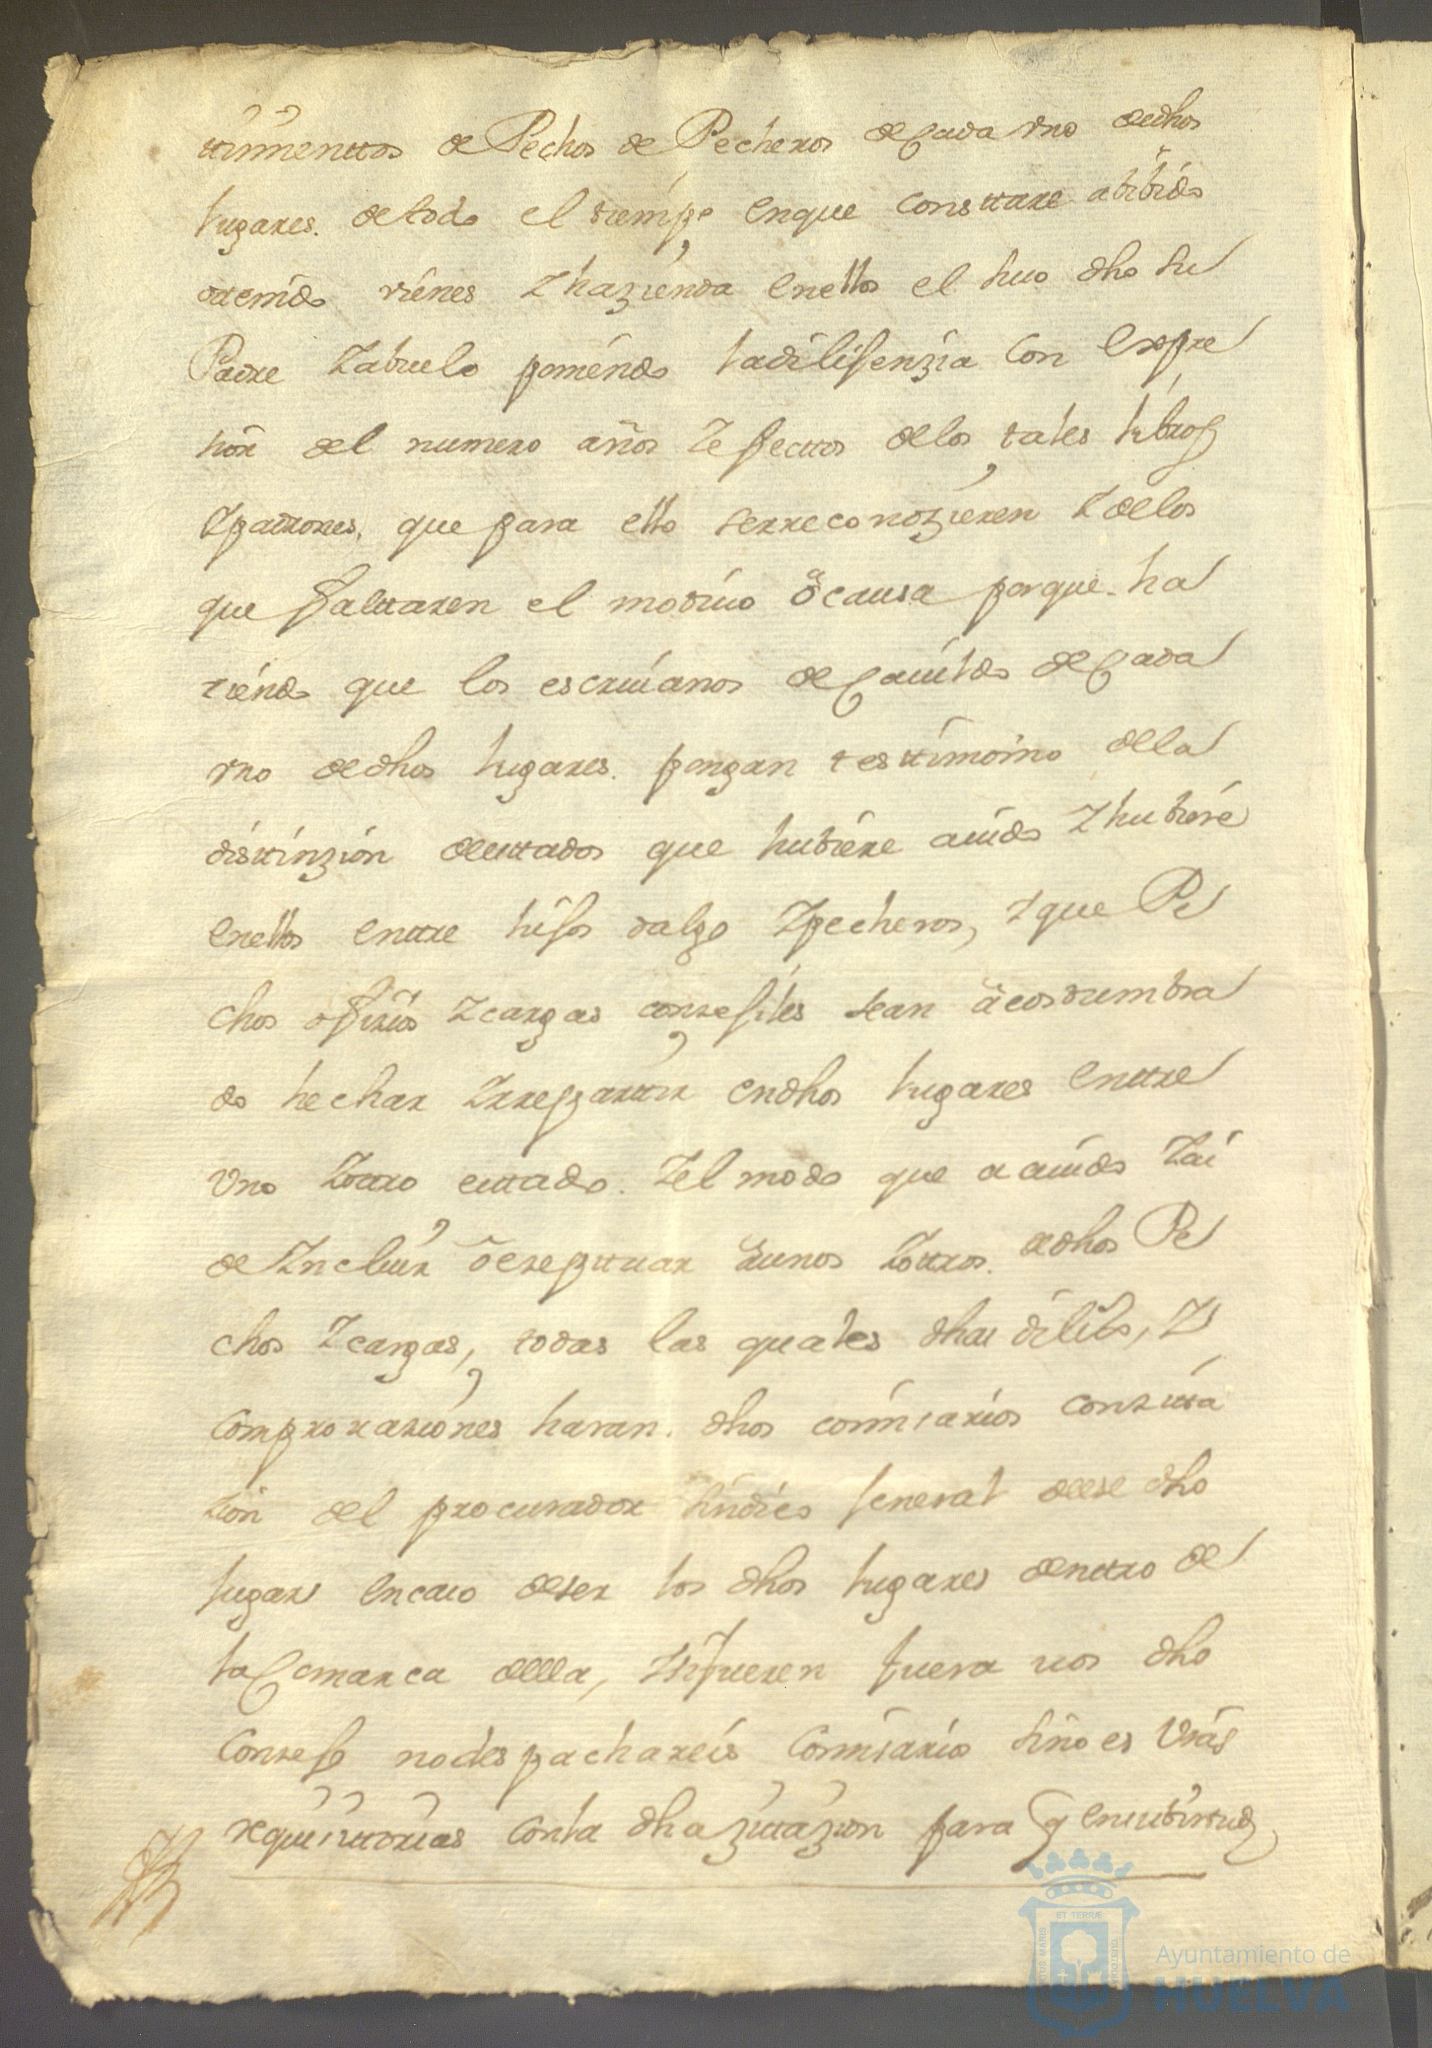 timientos de Pechos de Pecheros de Cada vno de dhos
lugares. de todo el tiempo en que Constare a bibido
o tenido vienes Y hazienda en ellos el suso dho su
Padre Y abuelo poniendo la dilijenzia Con expre
sion del numero años Y efectos de los tales libros
Y padrones, que para ello se rreconozieren Y de los
que faltaren el motiuo o causa porque. ha
ziendo que los escriuanos de Cauildo de Cada
vno de dhos lugares. pongan testimonio de la
distinzion de estados que hubiere auido Y hubiere
en ellos entre hijos dalgo Y pecheros, Y que Pe
chos ofizios Y cargas conzejiles sean acostumbra
do hechar Y rrepartir en dhos lugares entre
Vno Y otro estado. Y el modo que a auido Y ai
de Yncluir o exseptuar a unos Y otros. de dhos Pe
chos Y cargas, todas las quales dhas dilixs, Y
comprovaziones haran. dhos comisarios con zita
zion del procurador sindico jeneral de ese dho
lugar en caso de ser los dhos lugares dentro de
la Comarca de ella, Y si fueren fuera uos dho
Conzejo no despachareis Comisario sino es Vras
requisitorias con la dha zitazion para q en su birtud,
Ayuntamiento de
HUELVA